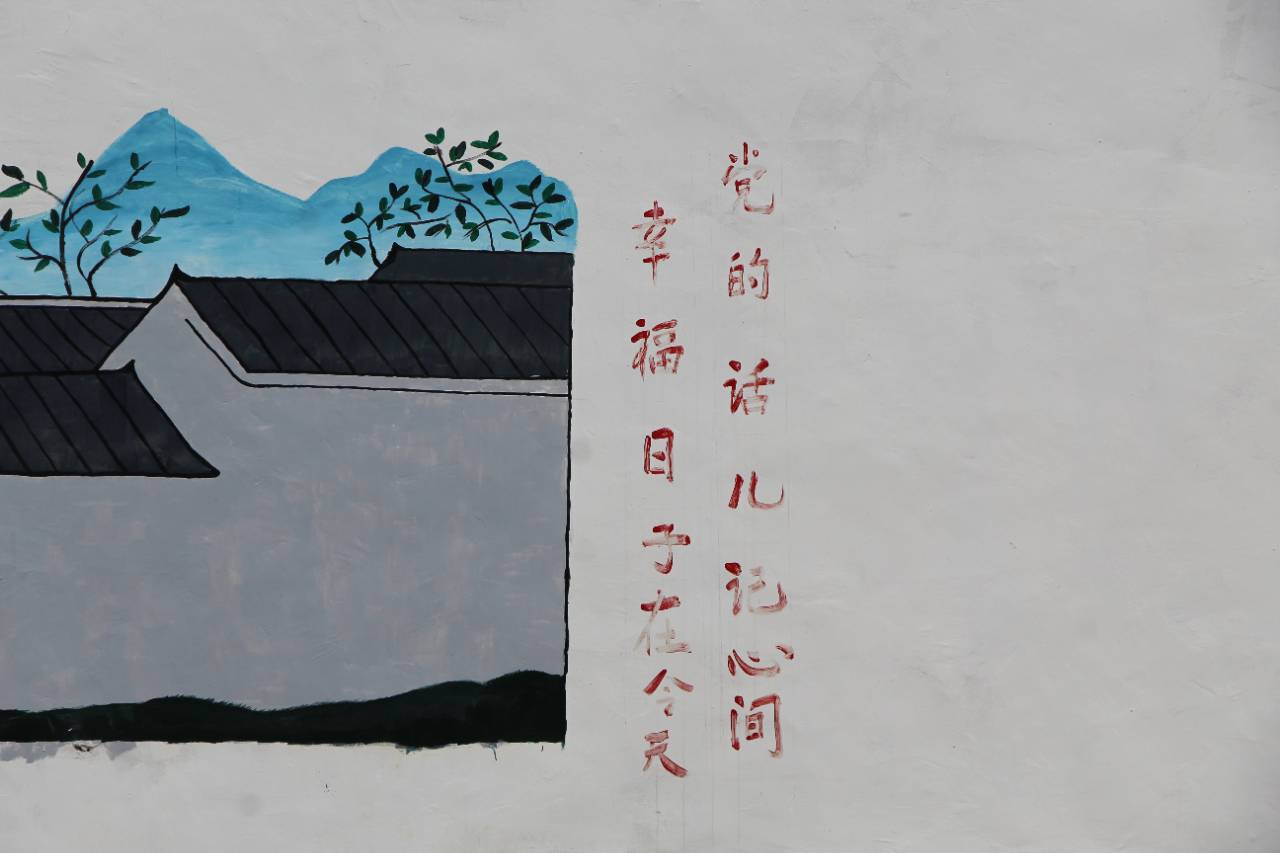 党的话儿记心间
幸福日子在今天